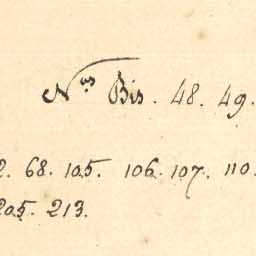 Nos Bis. 48. 49.
2. 68. 105. 106. 107. 110
205. 213.